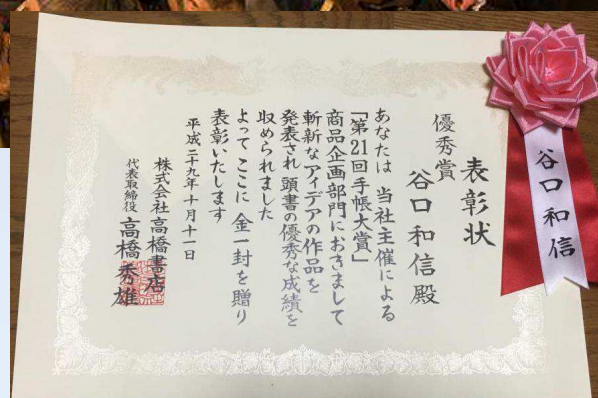 表彰状
優秀賞
谷口和信殿
あなたは 当社主催による
「第21回手帳大賞」
商品企画部門におきまして
斬新なアイデアの作品を
発表され 頭書の優秀な成績を
収められました
よって ここに 金一封を贈り
表彰いたします
平成二十九年十月十一日
株式会社高橋書店
代表取締役 高橋秀雄
谷口和信